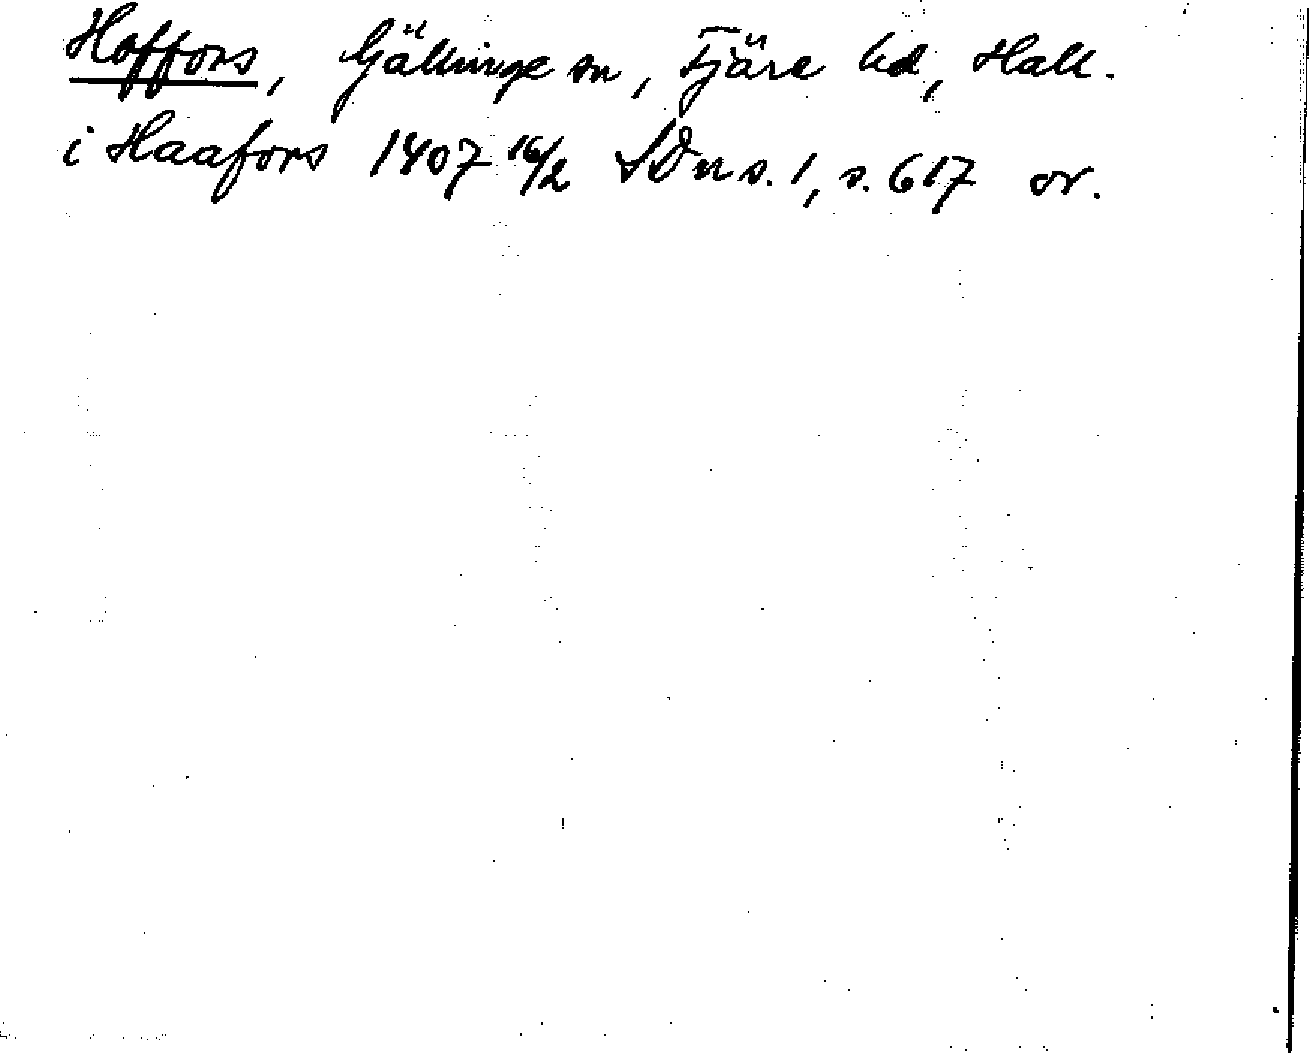 Hoffors, Gällinge sn, Fjäre hd, Hall.
i Haafors 1407 16/2 SDns. 1, s. 617 or.